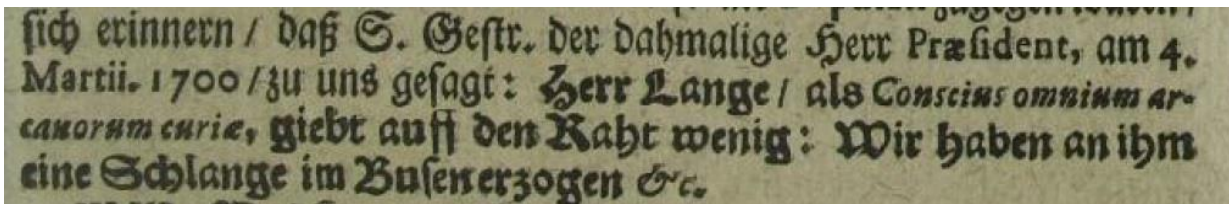 sich erinnern / daß S. Gestr. der dahmalige Herr Præsident, am 4.
Martii. 1700 / zu uns gesagt: Herr Lange / als Conscius omnium ar-
canorum curiæ, giebt auff den Raht wenig: Wir haben an ihm
eine Schlange im Busen erzogen &c.